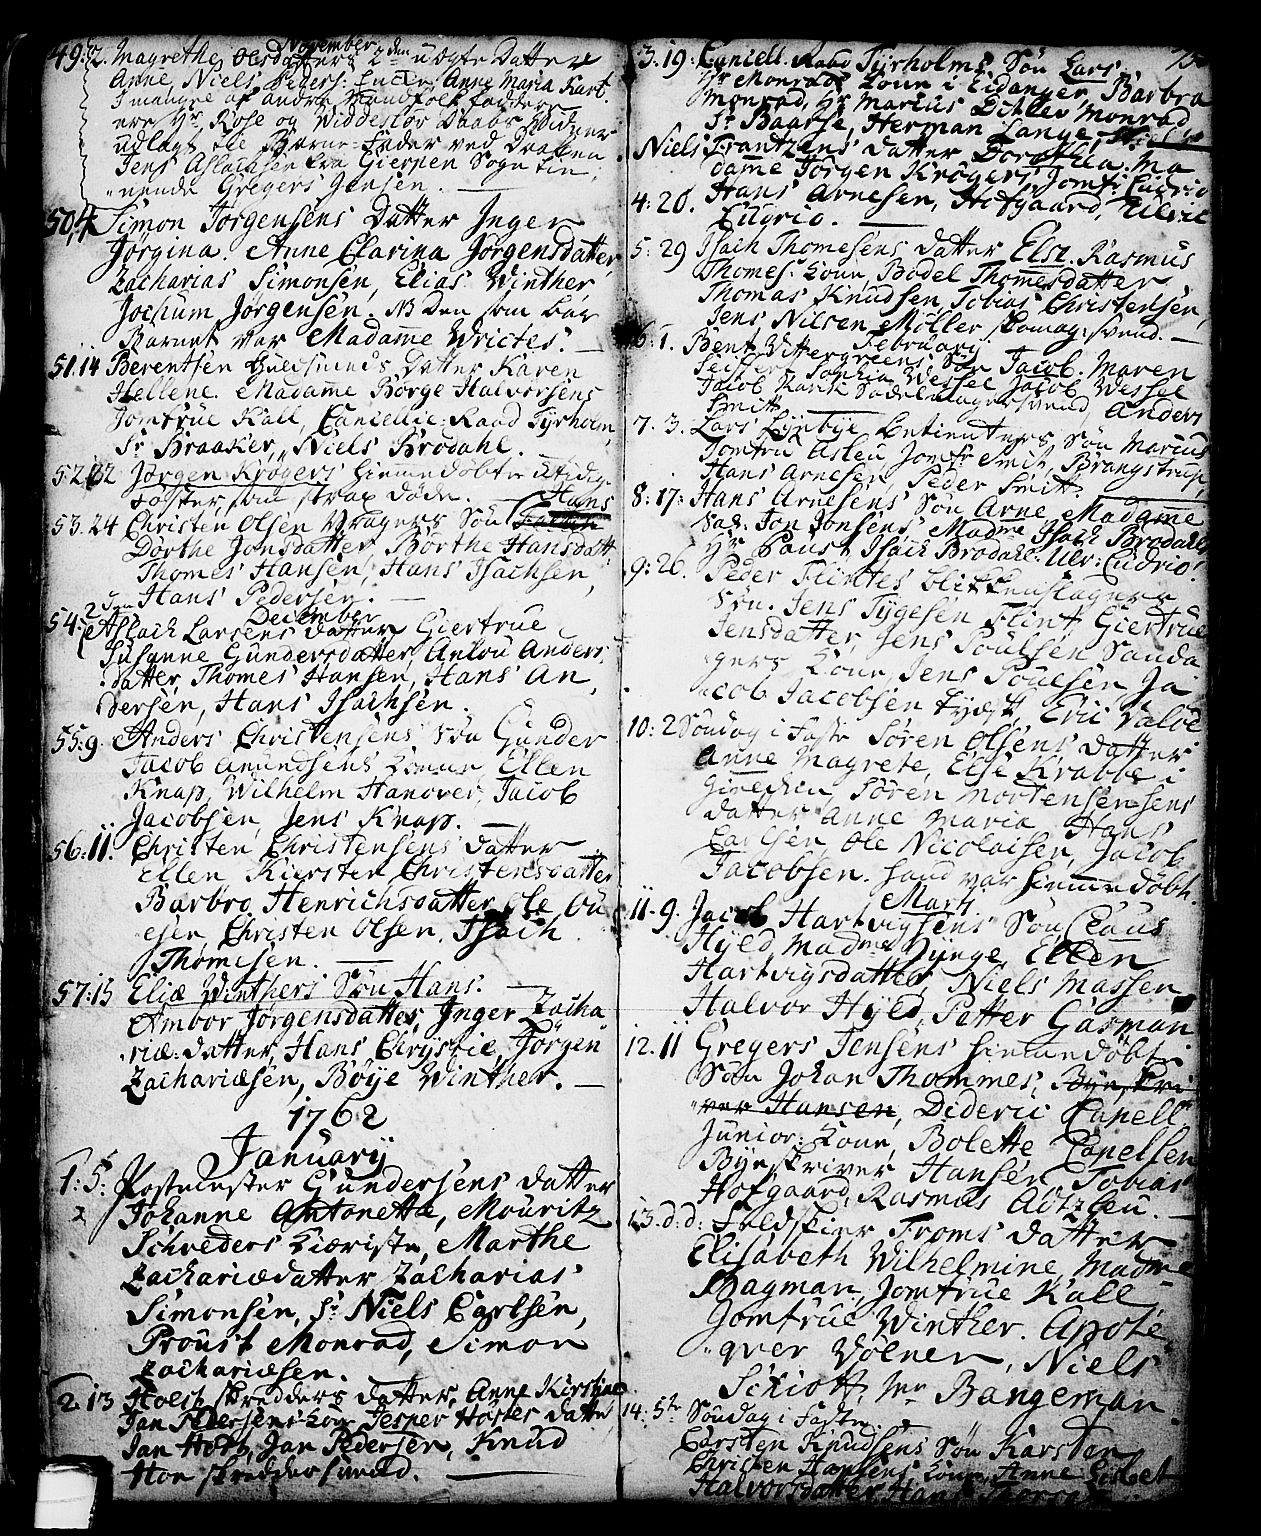 November
49: 2. Magrethe Olsdatters 2den uægte Datter
Anne, Niels Peders: Anne Maria Kart.
I mangel af andre Mandfolk faddere
ere Hr Rose og
udlagt til Barne-Fader ved Draffen
Jens Aslachsen fra Gierpen Sogn tie,
nende Gregers Jensen.
50,4 Simon Jørgensens Datter Inger
Jorgina. Anne Clarina Jørgensdatter,
Zacharias Simonsen, Elias Winther
Jochum Jørgensen. NB Den som bar
Barnet var Madame Wrictes.
51.14 Berentsen Guldsmeds Datter Karen
Hellene. Madame Børge Halvorsens
Jomfrue Kall, Cancellie-Raad Tyrholm,
Sr Braaker, Niels Brodahl.
52 22 Jørgen Krøgers hiemmedøbte utidige
foster, som strax døde.
Hans
53. 24 Christen Olsen Vragers Søn
Dorthe Jonsdatter, Børthe Hansdatt
Thomes Hansen, Hans Isachsen,
Hans Pedersen.
December
54: 2den Aslach Larsens datter Giertrue
Susanne Gundersdatter, Anlou Anders
datter, Thomes Hansen, Hans An,
dersen, Hans Isachsen.
55: 9. Anders Christensens Søn Gunder
Jacob Amundsens Koune, Ellen
Knap, Wilhelm Hanover, Jacob
Jacobsen, Jens Knap.
56: 11. Christen Christensens datter
Ellen Kiersten Christensdatter
Barbro Henrichsdatter, Ole Ou
esen, Christen Olsen, Isach
Thomesen.
57: 15 Eliæ Winthers Søn Hans.
Ambor Jørgensdatter, Inger Zacha-
riæ: datter, Hans Chrystie, Jørgen
Zachariæsen, Bøye Winther.
1762
January
1: 5: Postmester Gundersens datter
Johanne Antonette, Mouritz
Schreders Kiæriste, Marthe
Zachariædatter Zacharias
Simonsen, Sr Niels Carlsen,
Proust Monrad, Simon
Zachariæsen.
2. 13 Hoest skredders datter, Anne Kirstine
Jan Pedersens Kone Jesper Hostes datter
Jan Hots, Jan Pedersen, Knud
Hoe skreddersvend.
3. 19: Cancell: Raad Tyrholms Søn Lars.
Hr Monrads Koun i Eidanger, Barbra
Monrad, Hr Marius Ditlev Monrad
Sr Baarse, Herman Lange,
Niels Frantzens datter Dorothea Ma
dame Jørgen Krøgers, Jomf: Cudrio
4: 20. Hans Arnesen, Hofgaard, Ulric
Cudrio.
5: 29 Isach Thomesens datter Else. Rasmus
Thomes: Koun, Bodel Thomesdatter
Thomas Knudsen, Tobias Christensen,
Jens Nilsen Møller skomag: svend.
February
6: 1. Bent Vittergreens Søn Jacob. Maren
Sophia Wessel Jacob Wessel
Jacob Sadelmagersvend, Anders
Smit
7. 3. Lars Lynbye, betienters Søn Marius
Jomfru Aslou Jomfr Smit, Brangstrup,
Hans Arnesen Peder Smit.
8: 17: Hans Arnesens Søn Arne Madame
Sal: Jon Jonsens, Madme Isach Brodahl
Hr Paust, Isach Brodahl. Ulr: Cudrio.
9: 26. Peder Flintes blikkenslagers
Søn. Jens Tygesen Flint, Giertrue
Jensdatter, Jens Poulsen Sauda
gers Koun, Jens Poulsen, Ja
cob Jacobsen tydst, Eric Valøe
10: 2 Søndag i Faste Søren Olsens datter
Anne Magrete, Else Krabbe i
Søren Mortensensens
datter Anne Maria Hans
Carlsen, Ole Nicolaisen, Jacob
Jacobsen. saad var hiemmedøbt.
Marty
11. 9. Jacob Hartvigsens Søn Claus
Hyld, Madme Jynge, Ellen
Hartvigsdatter, Niels Massen
Halvor Hyld, Petter Gasman
12. 11 Gregers Jensens hiemmedøbte
Søn Johan Thommes, Byeskri
ver Hansen, Dideric Capell
Junior: Koun, Bolette Capelsen
Byeskriver Hansen, Tobias
Hofgaard, Rasmus Adtzleu.
13. d: d: Feldskier Froms datter
Elisabeth Wilhelmine, Madme
Bagman, Jomfrue Kall
Jomfrue Winther. Apote
qver Völner, Niels
Schiøtt, Mr Bangeman.
14. 5te Søndag i Faste.
Carsten Knudsens Søn Karsten
Christen Hansens Koun, Anne Lisbet
Halvorsdatter Hans